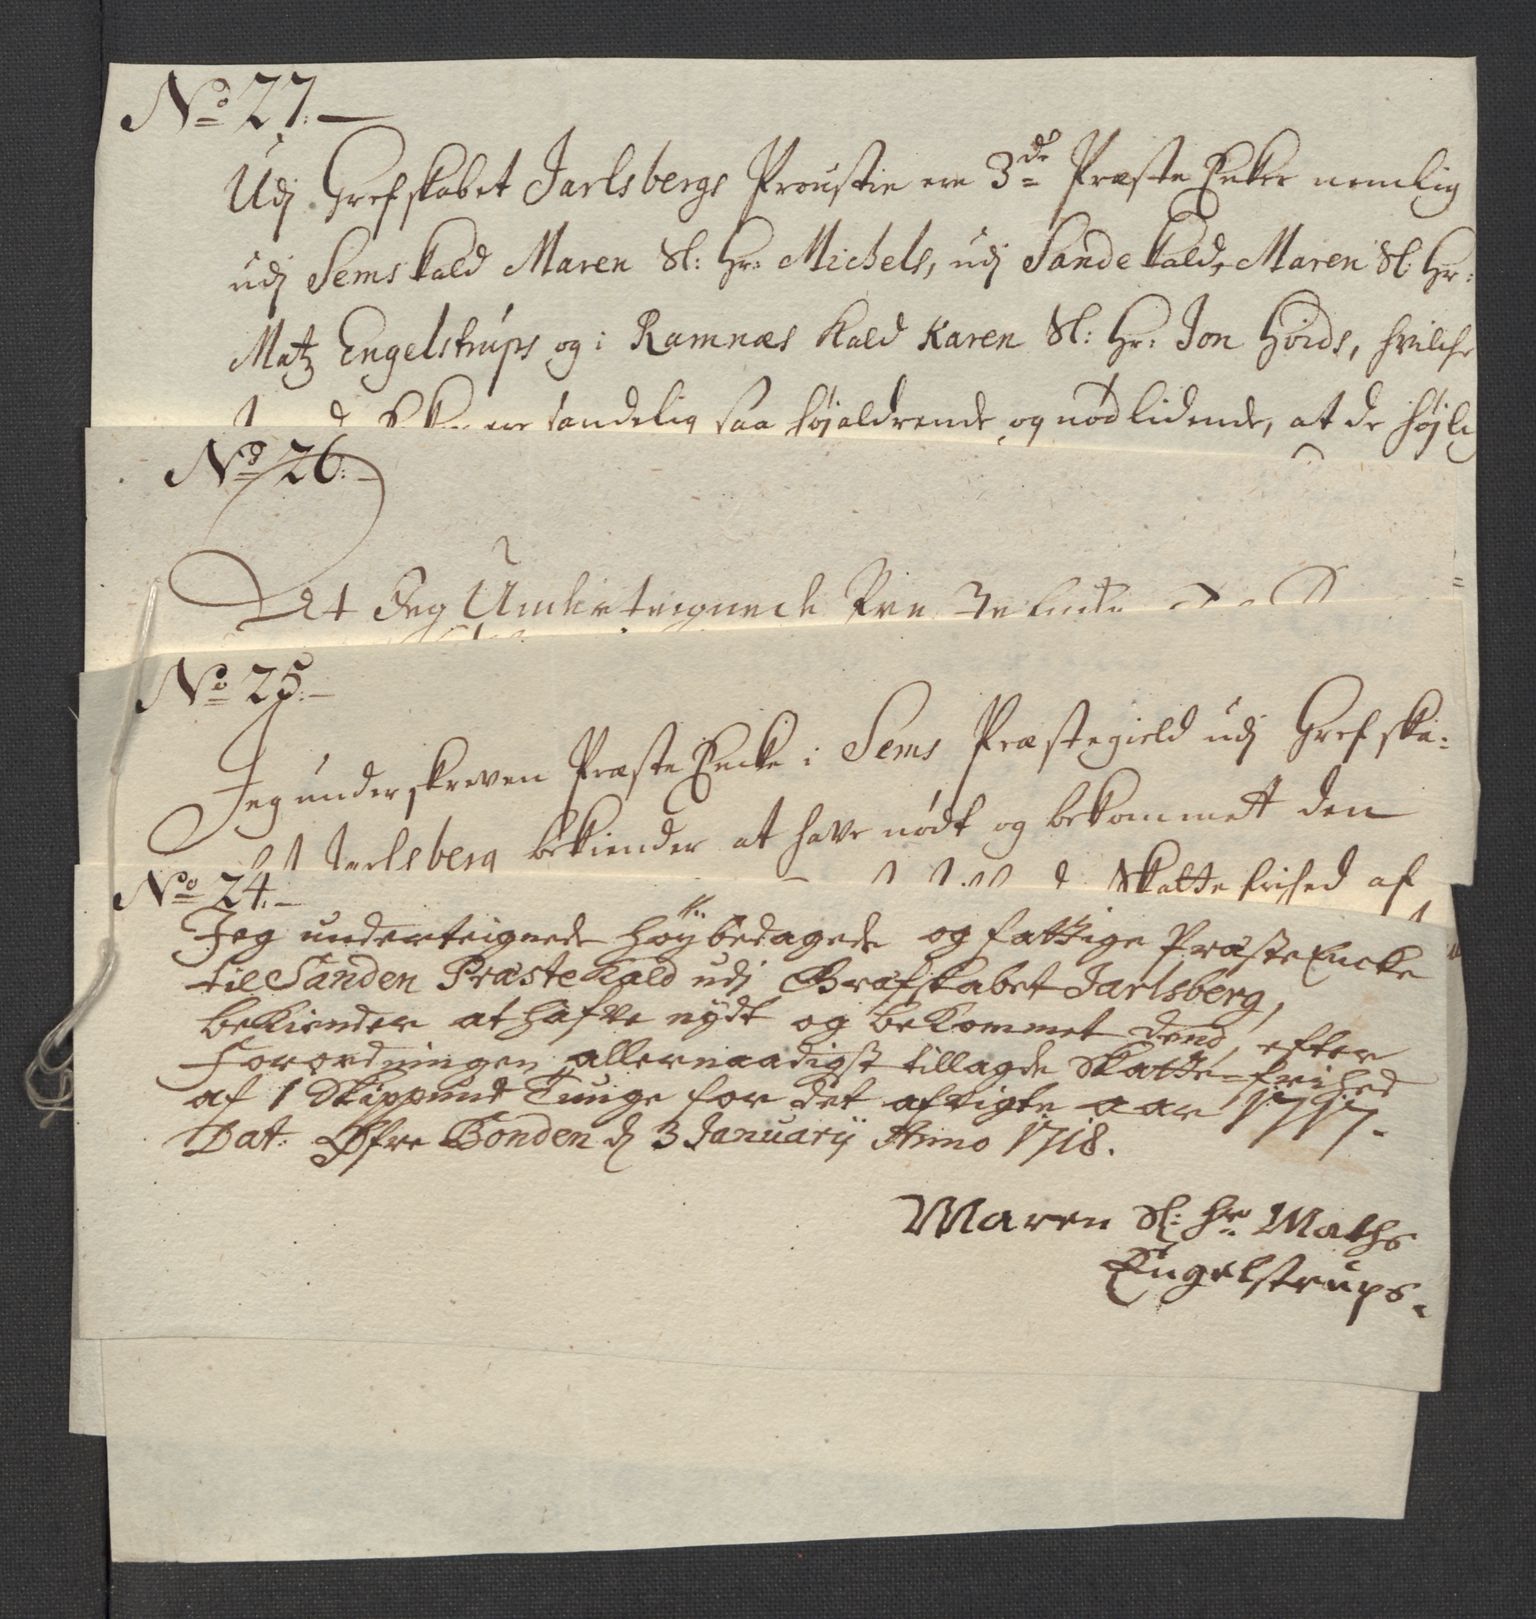 No 27.
Udj Grefskabet Jarlsbergs Proustie ere 3de Præste Enker nemlig
udj Sems kald Maren Sl: Hr: Michels, udj Sande kald, Maren Sl: Hr:
Matz Engelstrups og i Ramnæs kald Karen Sl: Hr: Jon Hoids, hvilche
sandelig saa højaldrende og nødlidende, at de højlig
No 26.
Det Jeg Underteignede
No 25.
Jeg underskreven Præste Encke i Sems Præstegield udj Grefska-
Jarlsberg bekiender at have nødt og bekommett den
Skatte frihed af
No 24.
Jeg underteignede høybedagede og fattige Præste Encke
til Sanden Præstekald udj Græfskabet Jarlsberg,
bekiender at hafve nydt og bekommet dend, efter
Forordningen, allernaadigst tillagde Skatte-frihed
af 1 Skippund Tunge for det afvigte aar 1717.
Dat: Øfre Bonden d 3 Januarij Anno 1718.
Maren Sl: Hr Maths
Engelstrups.